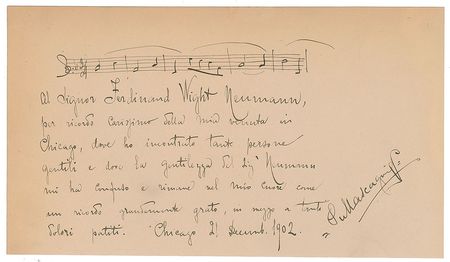 Al Signor Ferdinand Wight Neumann,
per ricordo carissimo della mia venuta in
Chicago, dove ho incontrato tante persone
gentili e dove la gentilezza del Sig. Neumann
mi ha confuso e rimane nel mio cuore come
un ricordo grandemente grato, in mezzo a tanti
dolori patiti. Chicago 21 Decemb. 1902.
PMascagni